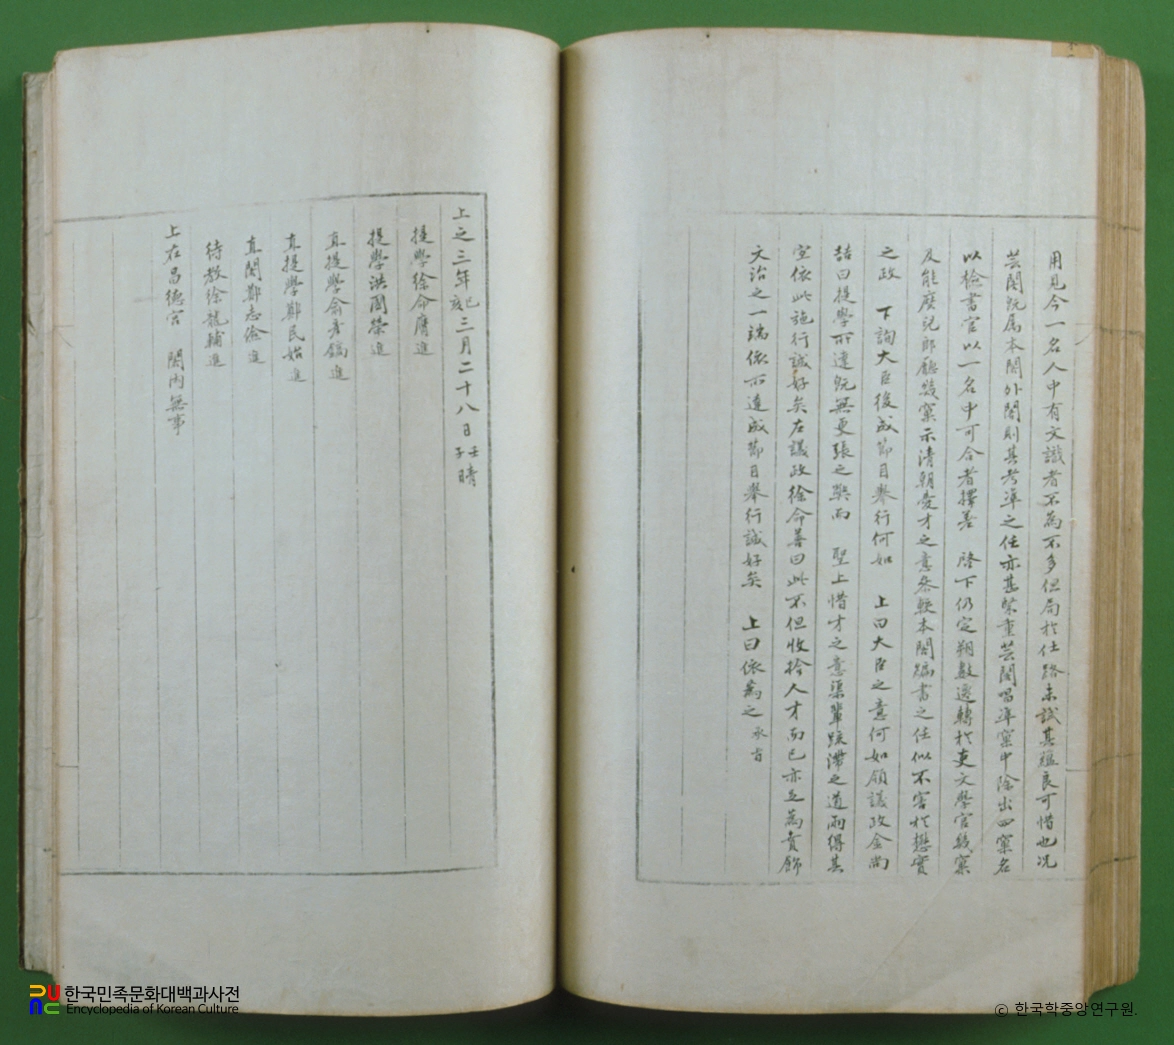 用見今一名人中有文識者不為不多但局於仕路未試其蘊良可惜也况
芸閣旣屬本閣外閣則其考準之任亦甚緊重芸閣唱準窠中除出四窠名
以檢書官以一名中可合者擇差 啓下仍定朔數遷轉於吏文學官幾窠
及能麽兒郎廳幾窠示清朝愛才之意答較本閣編書之任似不害於懋實
之政 下詢大臣後成節目擧行何如 上曰大臣之意何如領議政金尙
喆曰提學所達旣無更張之弊而 聖上惜才之意渠輩疎滯之道兩得其
宜依此施行誠好矣左議政徐命善曰此不但收拾人才而已亦足為賁飾
文治之一端依所達成節目擧行誠好矣 上曰依為之承旨
上之三年己亥三月二十八日壬子晴
提學徐命膺進
提學洪國榮進
直提學兪彥鎬進
直提學鄭民始進
直閣鄭志儉進
待敎徐龍輔進
上在昌德宮 閣內無事
한국민족문화대백과사전
Encyclopedia of Korean Culture
© 한국학중앙연구원.